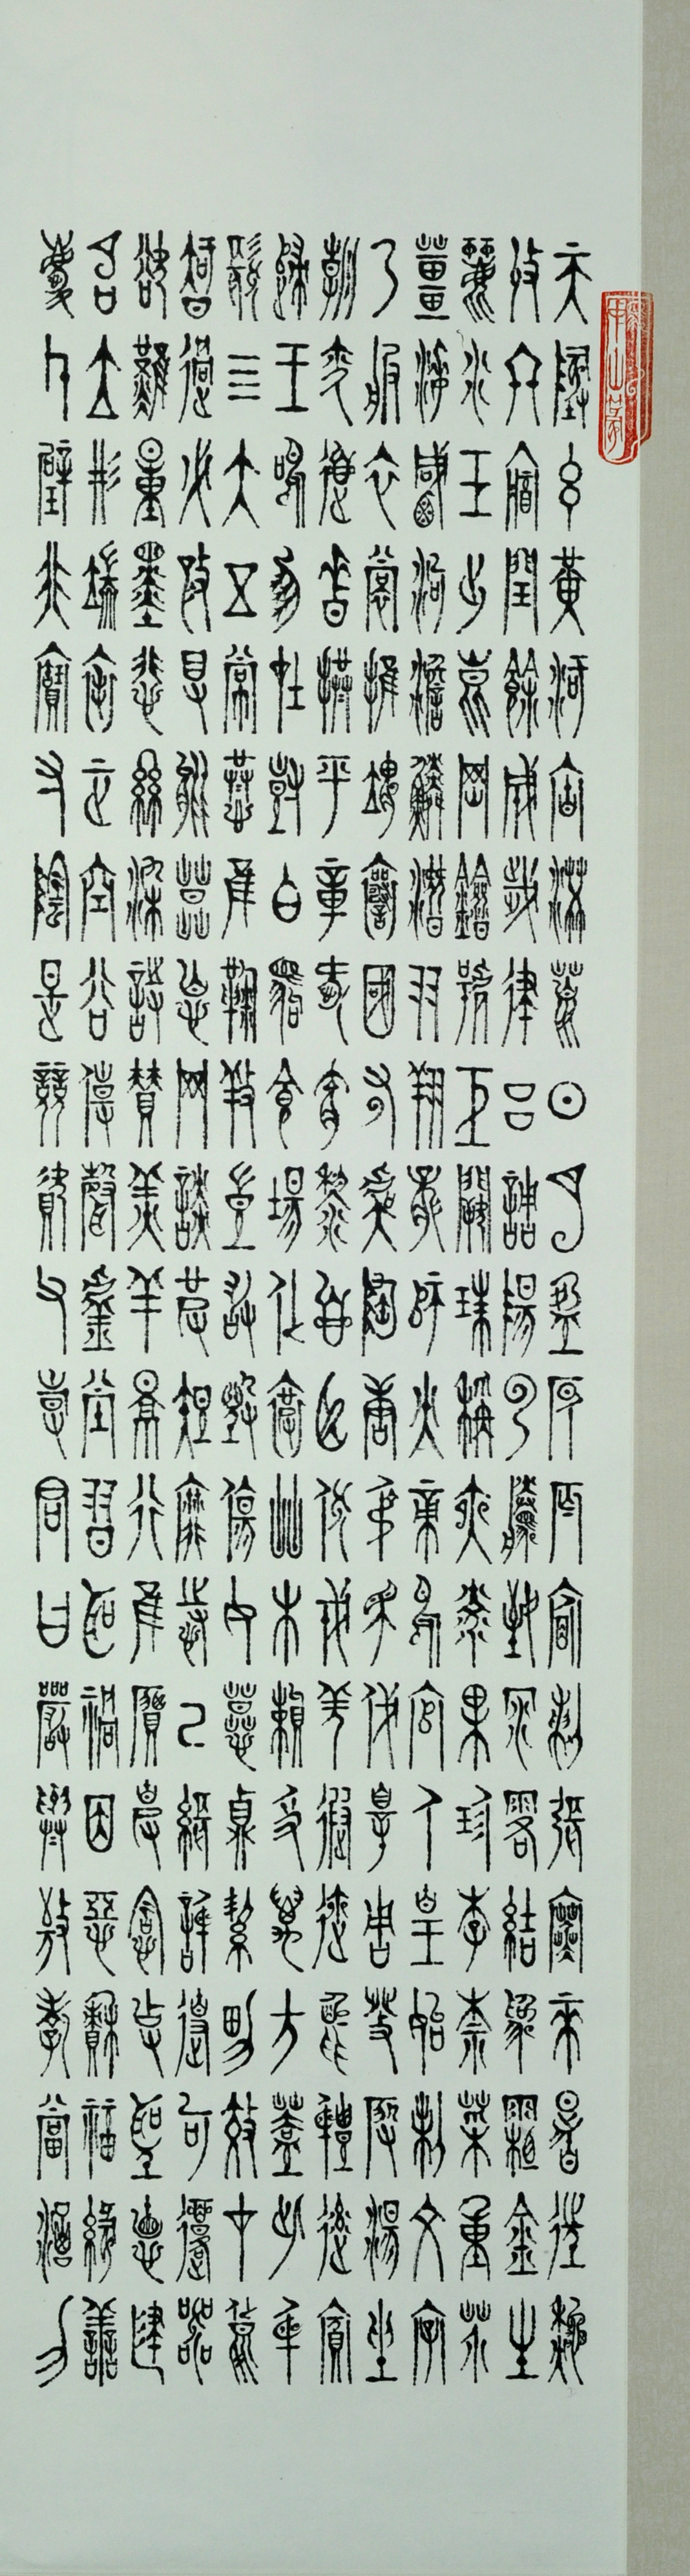 天地玄黃宇宙洪荒日月盈昃辰宿列張寒來暑往秋
收冬藏閏餘成歲律呂調陽雲騰致雨露結為霜金生
麗水玉出崑岡劍號巨闕珠稱夜光果珍李柰菜重芥
薑海鹹河淡鱗潛羽翔龍師火帝鳥官人皇始制文字
乃服衣裳推位讓國有虞陶唐弔民伐罪周發殷湯坐
朝問道垂拱平章愛育黎首臣伏戎羌遐邇壹體率賓
歸王鳴鳳在樹白駒食場化被草木賴及萬方蓋此身
髮四大五常恭惟鞠養豈敢毀傷女慕貞潔男效才良
知過必改得能莫忘罔談彼短靡恃己長信使可覆器
欲難量墨悲絲染詩讚羔羊景行維賢克念作聖德建
名立形端表正空谷傳聲虛堂習聽禍因惡積福緣善
慶尺璧非寶寸陰是競資父事君曰嚴與敬孝當竭力